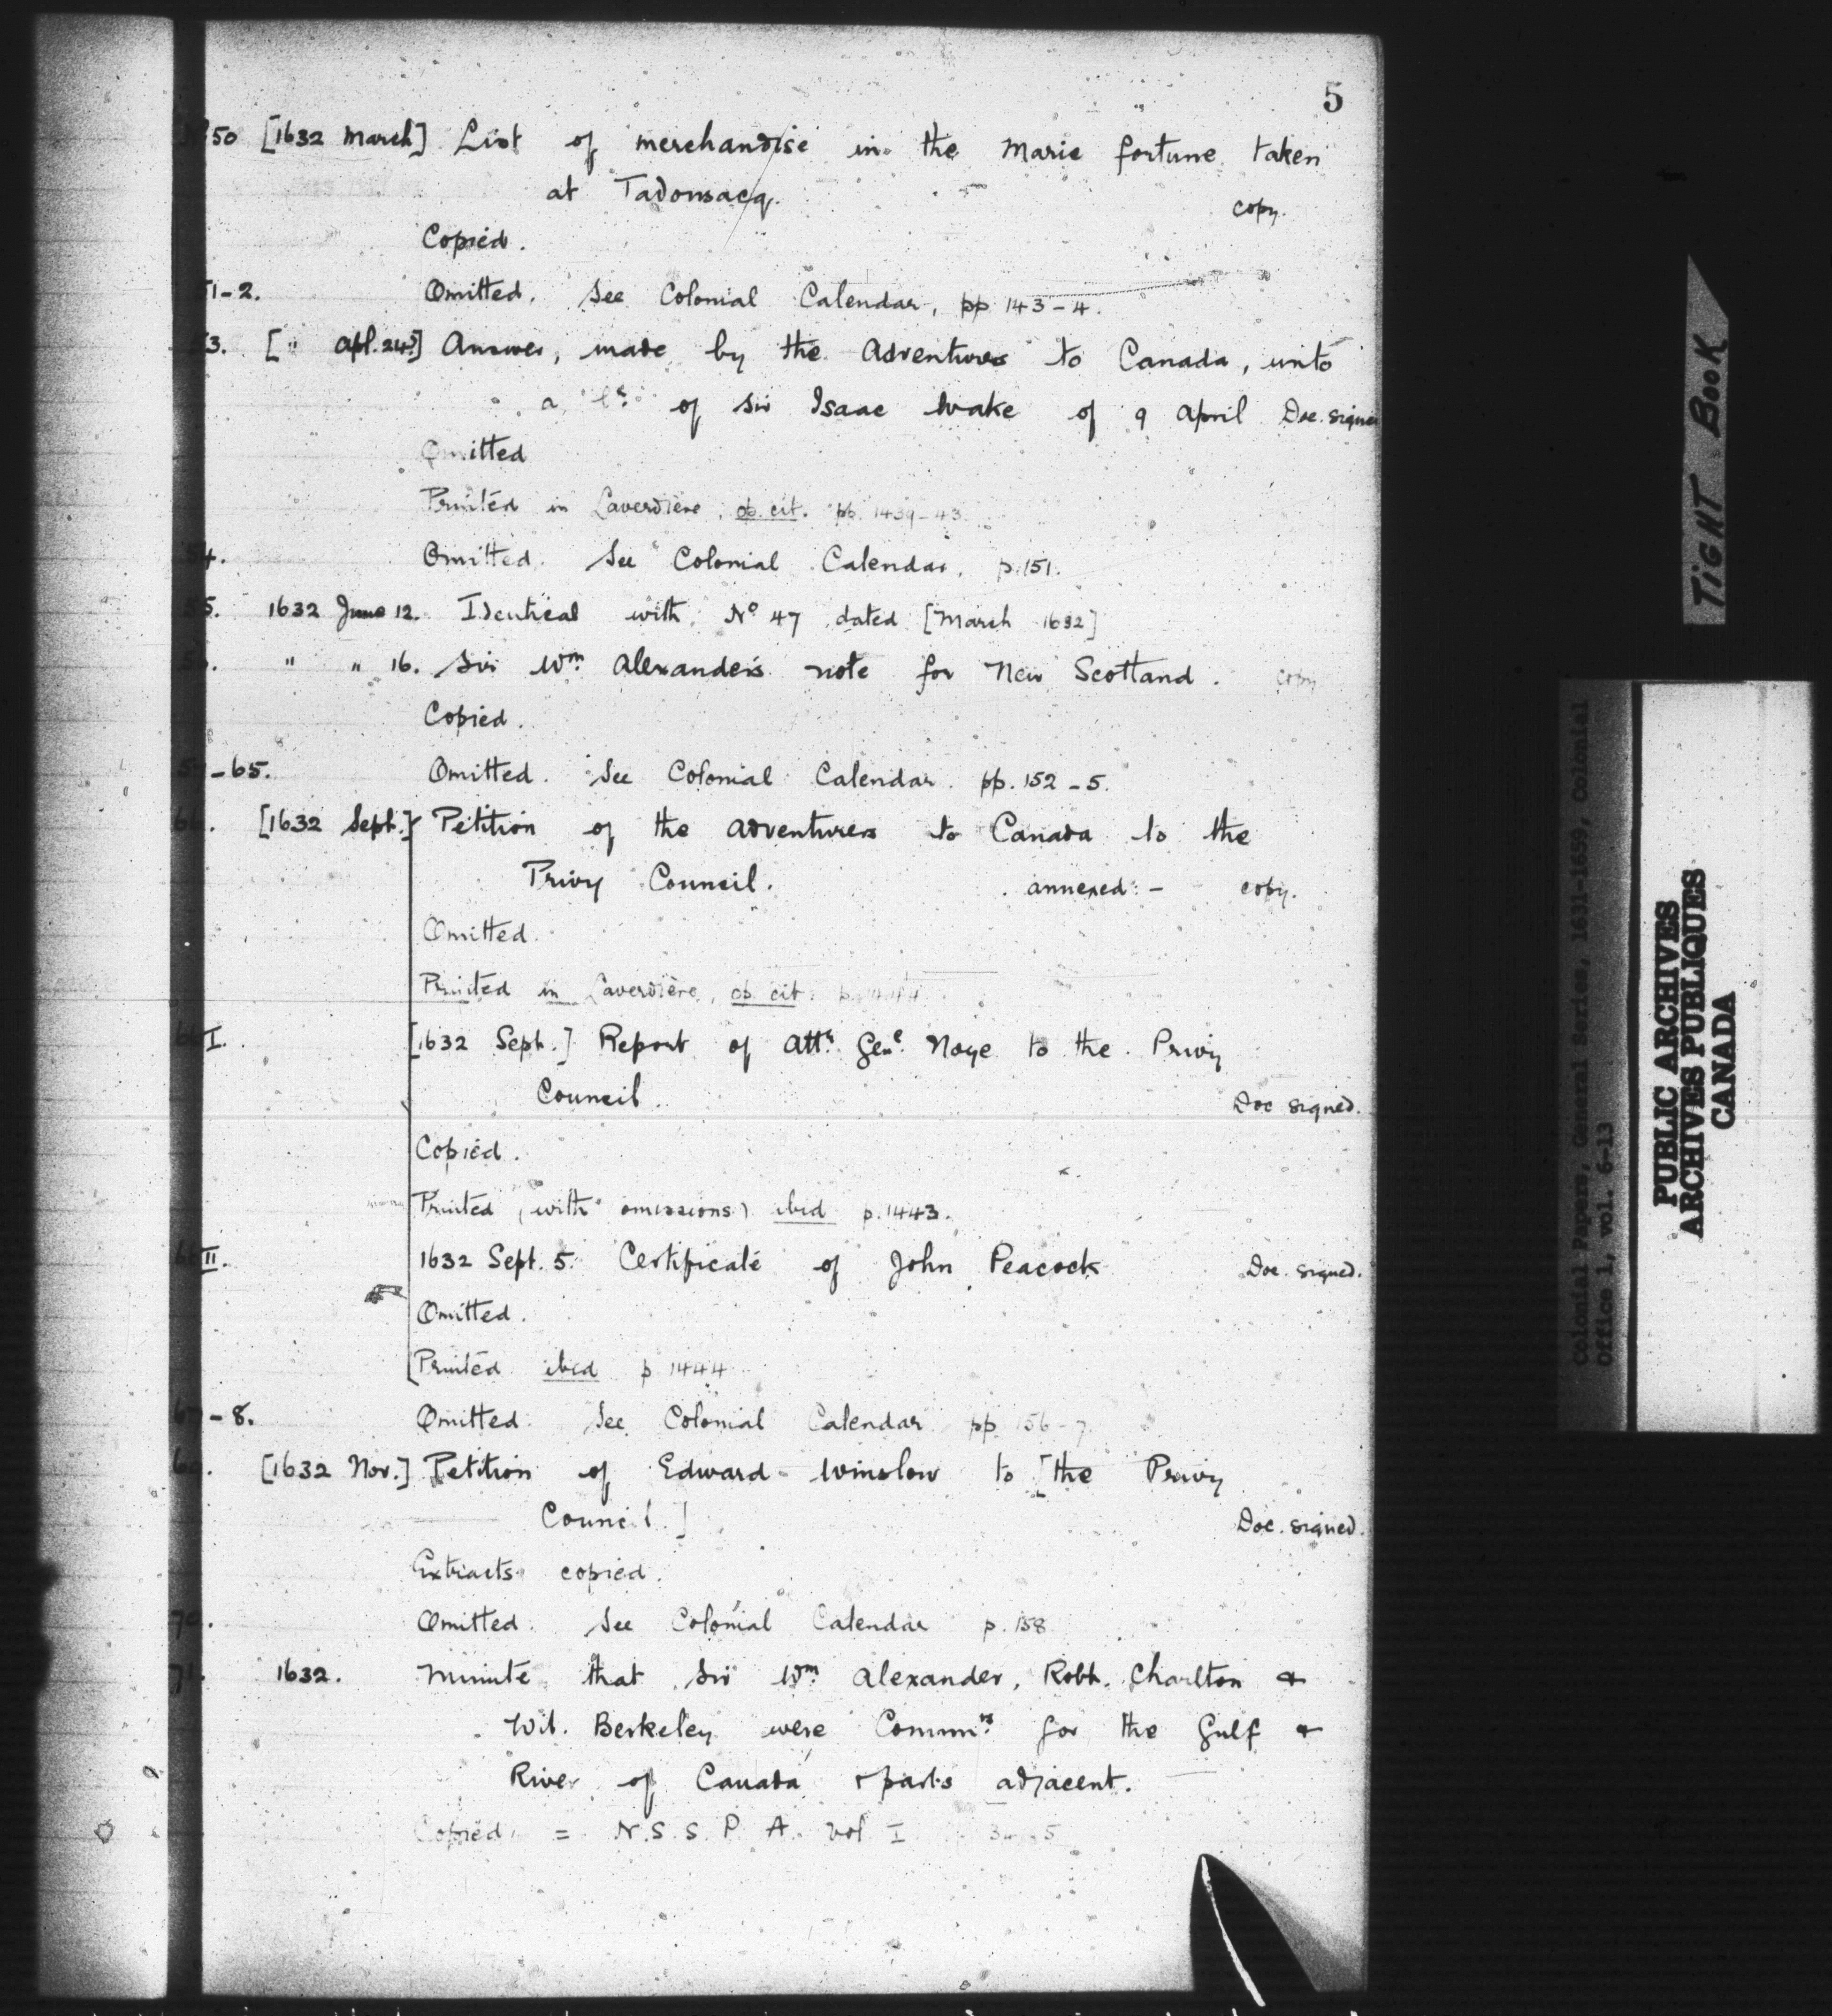 5
No 50 [1632 March] List of merchandise in the Marie fortune taken
at Tadousacq. copy.
Copied.
51-2. Omitted. See Colonial Calendar, pp 143-4.
53. [" Apl. 24?] Answer, made by the Adventurers to Canada, unto
a lr. of Sir Isaac Wake of 9 April Doc. signed
Omitted
Printed in Laverdière, op. cit. pp. 1439-43.
54. Omitted. See Colonial Calendar, p. 151.
55. 1632 June 12. Identical with No 47 dated [March 1632]
56. " " 16. Sir Wm. Alexander's note for New Scotland. copy
Copied.
57-65. Omitted. See Colonial Calendar. pp. 152-5.
66. [1632 Sept.] Petition of the adventurers to Canada to the
Privy Council. annexed:- copy.
Omitted.
Printed in Laverdière, op. cit. p.
66 I. [1632 Sept.] Report of Attr. Genl. Noye to the Privy
Council. Doc signed.
Copied.
Printed (with omissions) ibid p. 1443.
66 II. 1632 Sept. 5. Certificate of John Peacock Doc. signed.
Omitted.
Printed ibid p 1444
67-8. Omitted. See Colonial Calendar pp. 156-7.
69. [1632 Nov.] Petition of Edward Winslow to [the Privy
Council.] Doc. signed.
Extracts copied.
70. Omitted. See Colonial Calendar p. 158
71. 1632. Minute that Sir Wm. Alexander, Robt. Charlton &
Wil. Berkeley were Commrs. for the Gulf &
River of Canada & parts adjacent.
Copied. = N.S.S.P.A. Vol I
TIGHT BOOK
Colonial Papers, General Series, 1631-1659, Colonial
Office 1, vol. 6-13
PUBLIC ARCHIVES
ARCHIVES PUBLIQUES
CANADA